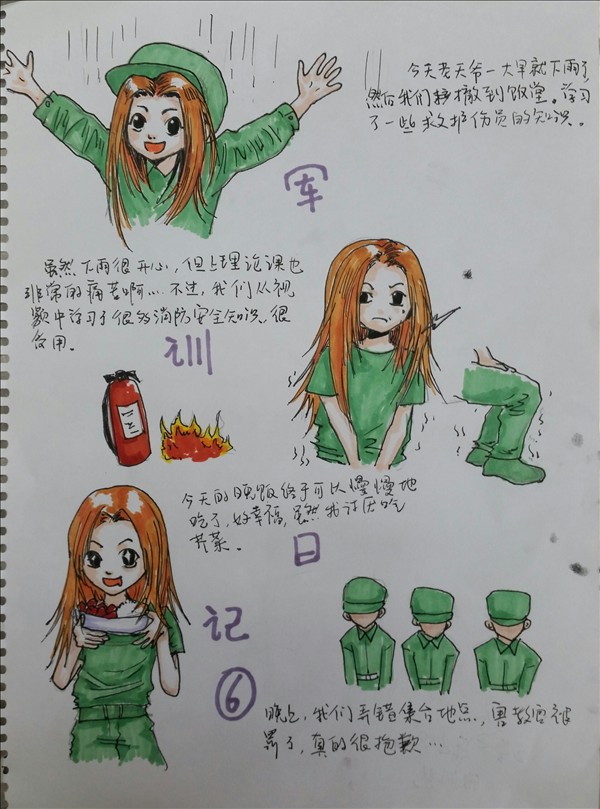 今天老天爷一大早就下雨了
然后我们转撤到饭堂。学习
了一些救护伤员的知识。
军
虽然下雨很开心,但上理论课也
非常的痛苦啊… 不过,我们从视
频中学习了很多消防安全知识,很
合用。
训
今天的晚饭终于可以慢慢地
吃了,好幸福,虽然我讨厌吃
芹菜。
日
记
⑥
晚上,我们弄错集合地点,害教官被
罚了,真的很抱歉…